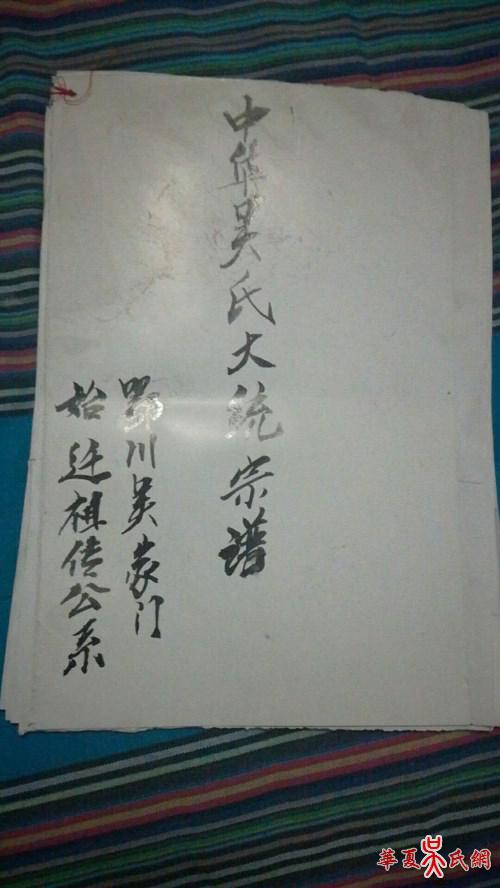 中华吴氏大统宗谱
鄂川吴家门
始迁祖传公系
華夏吴氏網